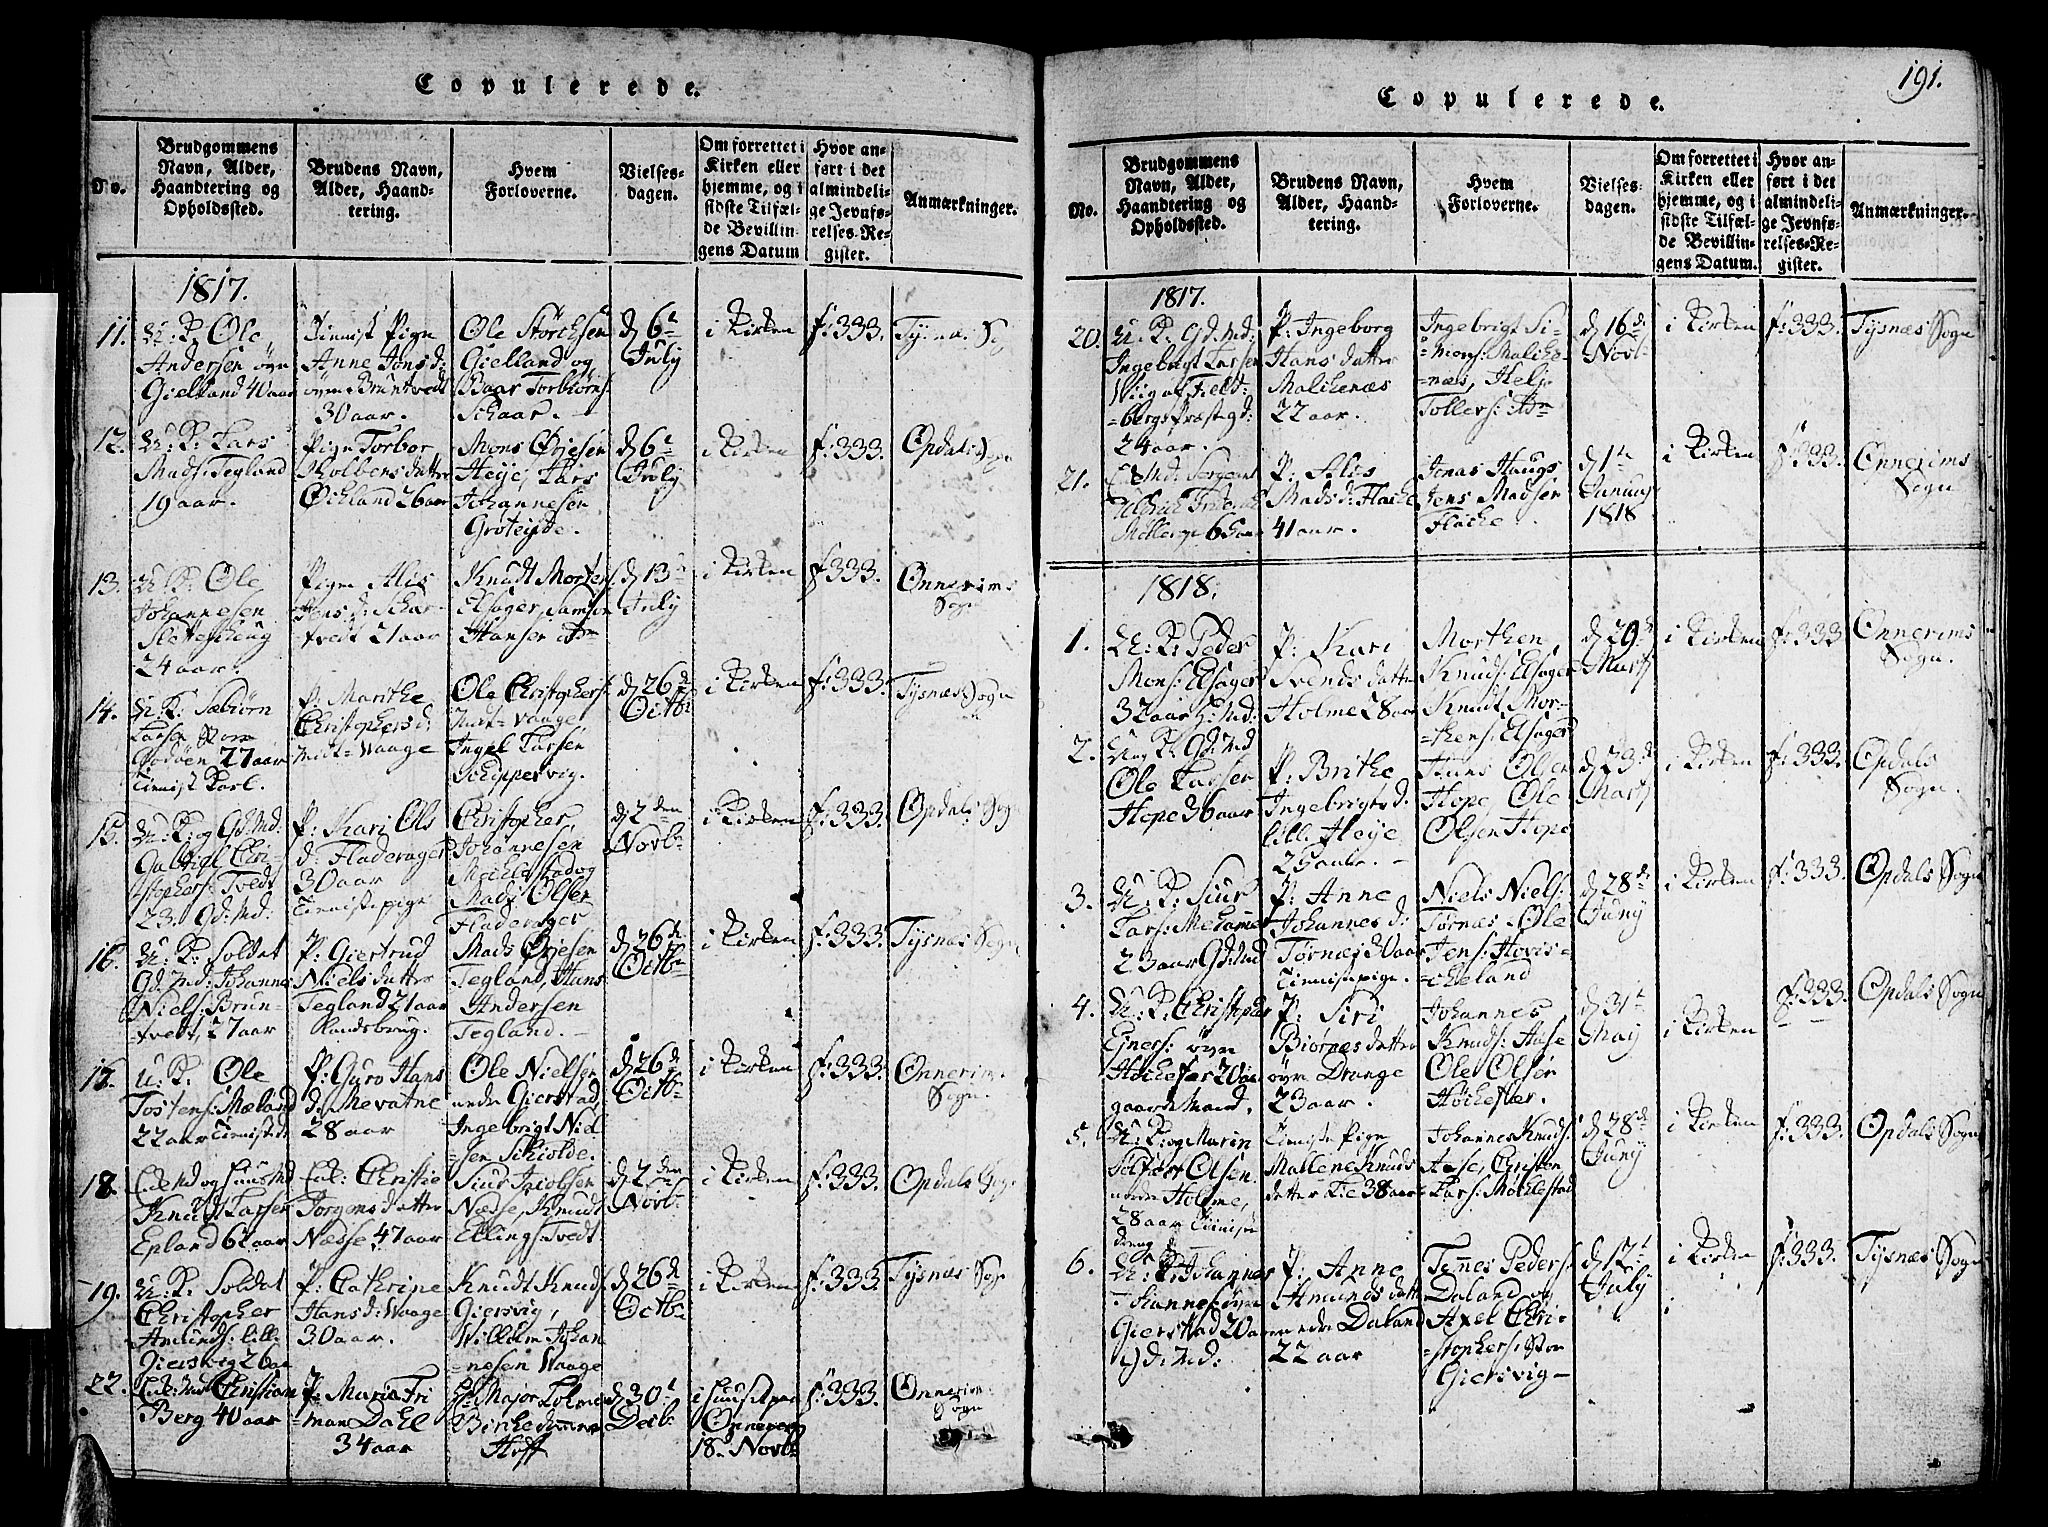 Copulerede.
No.
Brudgommens
Navn, Alder,
Haandtering og
Opholdssted.
Brudens Navn,
Alder, Haand-
tering.
Hvem
Forloverne.
Vielses-
dagen.
Om forrettet i
Kirken eller
hjemme, og i
sidste Tilfæl-
de Bevillin-
gens Datum
Hvor an-
ført i det
almindeli-
ge Jevnfø-
relses-Re-
gister.
Anmærkninger.
1817.
11.
U: K: Ole
Andersen øvre
Gielland 40 aar
Tienist Pige
Anne Jons d:
øvre Bruntvedt
30 aar.
Ole Störchsen
Gielland og
Baar Torbiörns:
Schaar.
d 6te
July
i Kirken
f: 333.
Tysnæs Sog
12.
U: K: Lars
Mads: Tegland
19 aar.
Pige Torbor
Kolbens datter
Öchland 26 aar
Mons Örjesen
Heye, Lars
Johannesen
Groteyde.
d 6te
July
i Kirken
f: 333.
Opdals Sogn
13.
U: K: Ole
Johannesen
24 aar.
Pige Alis
Jons d: Schar-
tvedt 21 aar
Knudt Morten:
Elsager, Samson
Hansen ibm
d 13de
July
i Kirken
f: 333.
Onnerims
Sogn
14.
U: K: Sæbiörn
Larsen Store
Godöen 27 aar
Tienist Karl.
P: Marithe
Christophers d:
midt-Waage
Ole Christophers:
midt-Waage
Ingel Larsen
Schippervig.
d 26de
Octbr
i Kirken
f: 333.
Tysnæs Sogn
15.
U: K: og Gd: Md:
Gabriel Chri-
stophers: Tvedt
23. Gd: Md:
P: Kari Ols
d: Fladerager
30 aar
Tienistepige
Christopher
Johannesen
Möchlestad og
Mads Olsen
Fladerager
d 2den
Novbr
i Kirken
f: 333.
Opdals Sog
16.
U: K: Soldat
Gd: Md: Johannes
Niels: Brun-
tvedt, 27 aar
P: Giertrud
Niels datter
Tegland 21 aar
Mads Örjesen
Tegland, Hans
Andersen
Tegland.
d 26de
Octbr
i Kirken
f: 333.
Tysnæs Sogn
17.
U: K: Ole
Tostens: Mæland
22 aar
P: Guro Hans
d: Mevatne
28 aar
Ole Nielsen
nedre Gierstad,
Ingebrigt Niel-
sen Schiolde.
d 26de
Octbr
i Kirken
f: 333.
Onnerims
Sogn.
18.
Enk: Md og Huus Md
Knud Larsen
Epland 62 aar
Enk: Christie
Jorgens datter
Nædse 47 aar
Siur
Nædse, Knudt
Ellings: Tvedt
d 2den
Novbr
i Kirken
f: 333.
Opdals Sogn
19.
U: K: Soldat
Christopher
Amunds: lille
Giersvig 26 aar
P: Cathrine
Hans d: Waage
30 aar.
Knudt Knuds:
Giersvig,
Willom Johan-
nesen Waage
d 26de
Octbr
i Kirken
f: 333
Tysnæs Sogn
22.
Enk: Md Christian
Berg 40 aar
P: Maria Fri
man Dahl
34 aar
Hr Major
Hoff
d 30te
Decbr
i huuset paa
18. Novbr
f: 333.
Onnerims
Sogn
191.
Copulerede.
No.
Brudgommens
Navn, Alder,
Haandtering og
Opholdssted.
Brudens Navn,
Alder, Haand-
tering.
Hvem
Forloverne.
Vielses-
dagen.
Om forrettet i
Kirken eller
hjemme, og i
sidste Tilfæl-
de Bevillin-
gens Datum.
Hvor an-
ført i det
almindeli-
ge Jevnfø-
relses-Re-
gister.
Anmærkninger.
1817.
20.
U: K: Gd: Md:
Ingebrigt Larsen
Wiig af Field-
bergs Præstegd:
24 aar.
P: Ingeborg
Hans datter
Malchenæs
22 aar.
Ingebrigt Si-
mons: Malche-
næs, Helje
Tollefs: ibm
d 16de
Novbr
i Kirken
f: 333.
Tysnæs Sogn
21.
E: Md: Sergeant
63 aar
P: Alis
Mads d: Flache
41 aar.
Jonas Haugs
Jens Madsen
Flache
d 1te
Januar
1818
i Kirken
f: 333.
Onnerims
Sogn
1818.
1.
U: K: Peder
Mons: Elsager
32 aar G: Md:
P: Kari
Svends datter
Holme 28 aar
Morthen
Knuds: Elsager
Knudt Mor-
thens: Elsager
d 29de
Marts
i Kirken
f: 333
Onnerims
Sogn.
2.
Ung K: Gd: Md
Ole Larsen
Hope 36 aar
P: Brithe
Ingebrigts d.
lille Heye
25 aar.
Hans Olsen
Hope, Ole
Olsen Hope
d 23de
Marts
i Kirken
f: 333.
Opdals
Sogn.
3.
U: K: Siur
Lars: Mehamer
23 aar Gd: Md
P: Anne
Johannes d:
Tørnes 20 aar
Tienistepige.
Niels Niels:
Tornæs - Ole
Jens: Hovis-
cheland
d 28de
Juny
i Kirken
f: 333.
Opdals Sogn
4.
U: K: Christopher
Einers: øvre
Höchefær 20 aar
gaardemand.
P: Siri
Biörnes datter
øvre Drange
23 aar.
Johannes
Knuds: Aase
Ole Olsen
Höchefær.
d 31te
May
i Kirken
f: 333.
Opdals Sogn
5.
U: K: og Marin
Tolfær Olsen
nedre Holme,
28 aar Tieniste
dreng
Tieniste Pige
Mallene Knuds
datter 38 aar
Johannes Knuds:
Aase, Christen
Lars: Möchlestad
d 28de
Juny
i Kirken
f: 333.
Opdals Sogn
6.
U: K: Johannes
Hannes: øvre
Gierstad 20 aar
Gd: Md:
P: Anne
Amunds datter
nedre Daland
22 aar
Tønnes Peders:
Daland og
Axel Chri-
stophers: Store
Giersvig
d 12te
July
i Kirken
f: 333.
Tysnæs Sogn